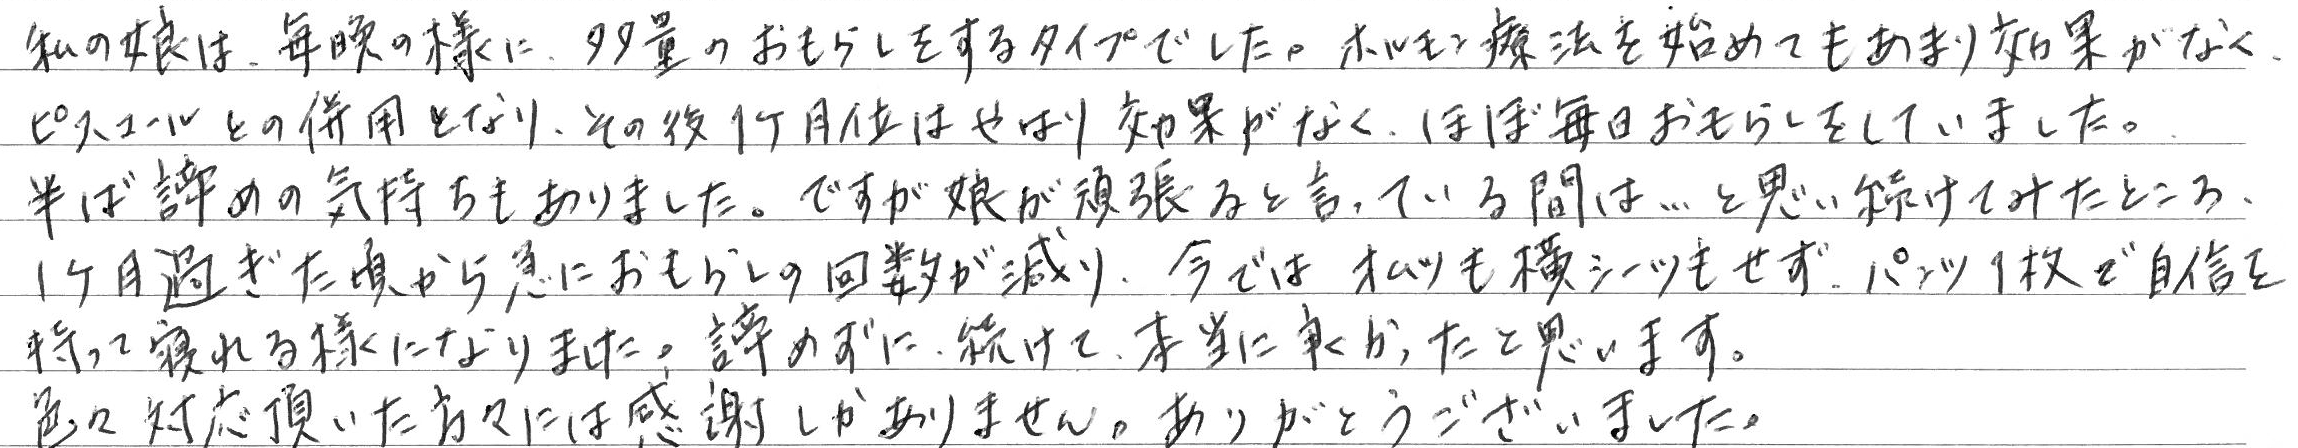 私の娘は、毎晩の様に、多量のおもらしをするタイプでした。ホルモン療法を始めてもあまり効果がなく、
ピスコールとの併用となり、その後1ケ月位はやはり効果がなく、ほぼ毎日おもらしをしていました。
半ば諦めの気持ちもありました。ですが娘が頑張ると言っている間は…と思い続けてみたところ、
1ケ月過ぎた頃から急におもらしの回数が減り、今ではオムツも横シーツもせず、パンツ1枚で自信を
持って寝れる様になりました。諦めずに、続けて、本当に良かったと思います。
色々対応頂いた方々には感謝しかありません。ありがとうございました。